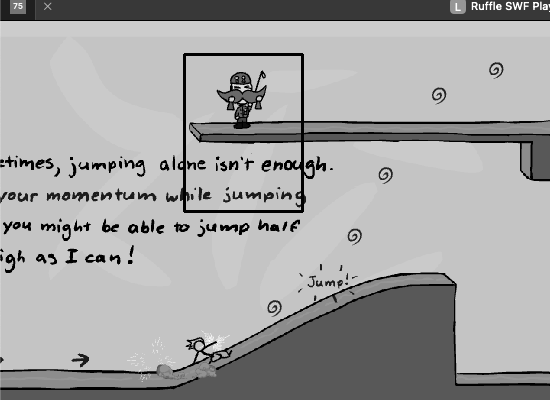 75
L Ruffle SWF Play
etimes, jumping alone isn't enough.
your momentum while jumping
you might be able to jump half
igh as I can!
Jump!